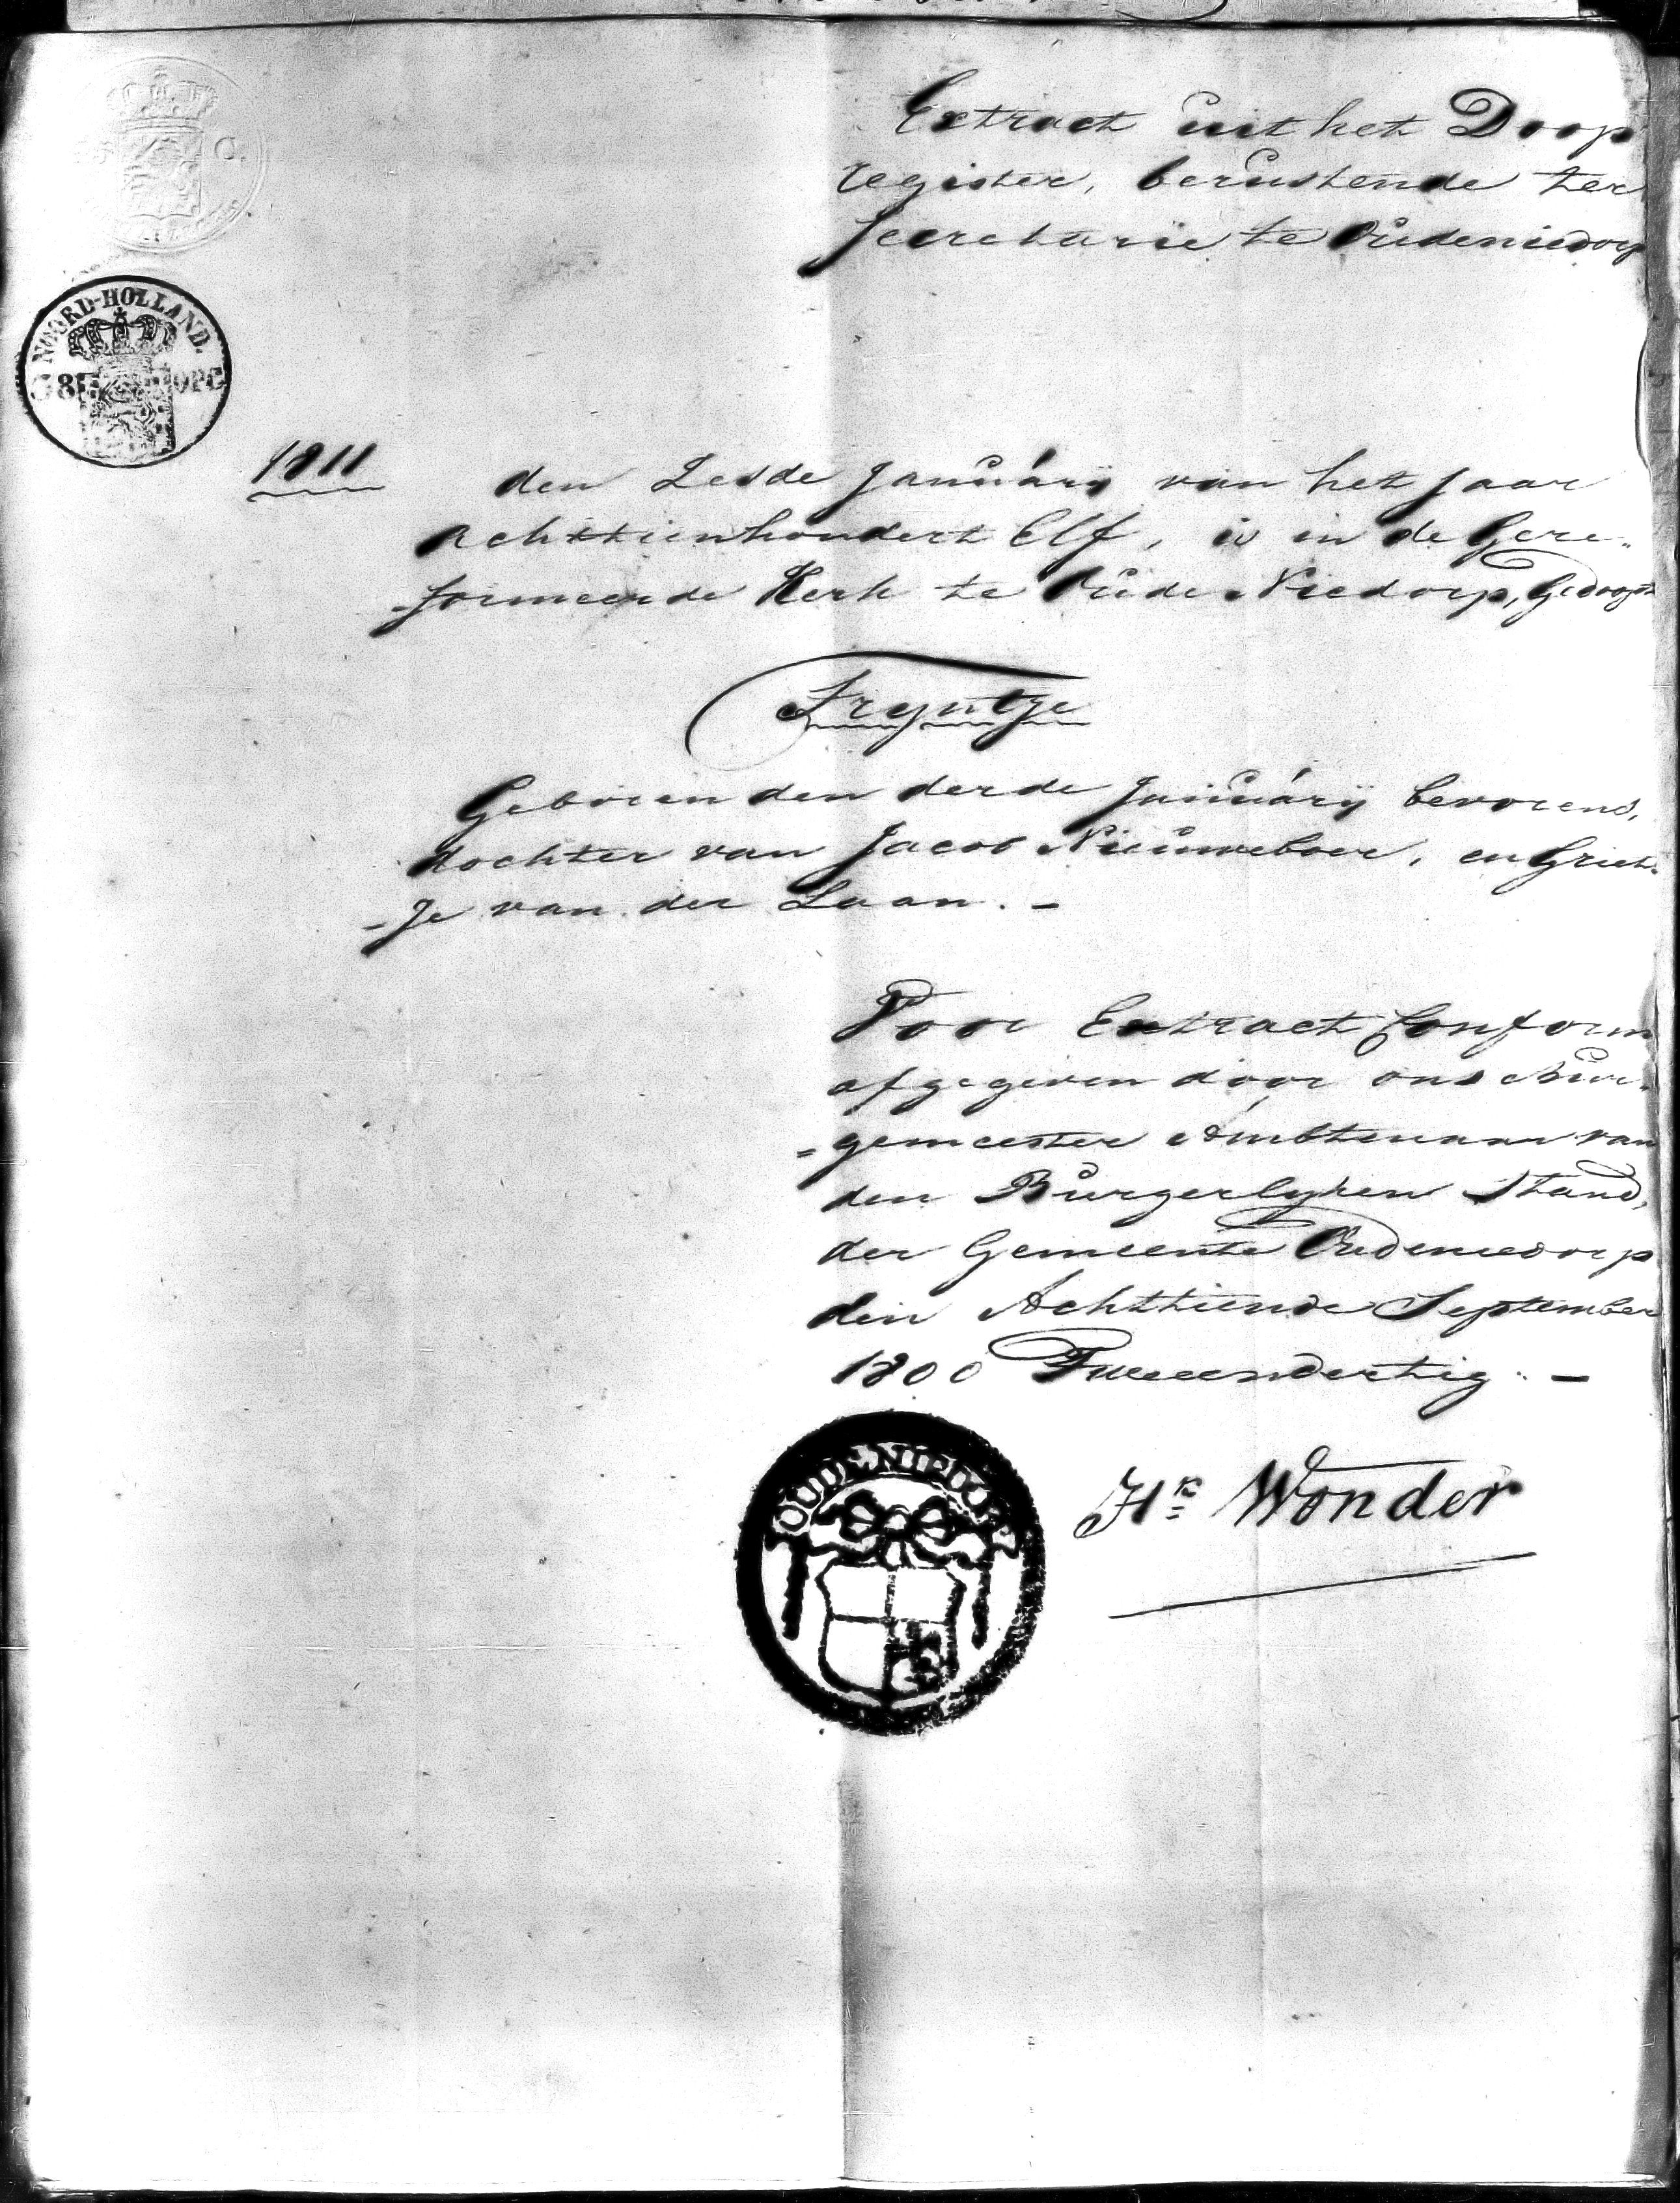 Extract uit het Doop
register, berustende ter
Secretarie te Oudeniedorp
NOORD-HOLLAND.
1811
den Zesde Januárij van het Jaar
Achttienhondert Elf, is in de Gere„
-formeerde Kerk te Oude Niedorp, Gedoopt
Tryntje
Geboren den derde Januárij bevorens,
dochter van Jacob Nieuweboer, en Griet„
-Je van der Laan. -
Voor Extract Conform
afgegeven door ons Bur„
=gemeester Ambtenaar van
den Burgerlyken Stand,
der Gemeente Oudeniedorp
den Achttiende September
1800 Tweeendertig. -
OUDE NIEDORP
Hk Wonder